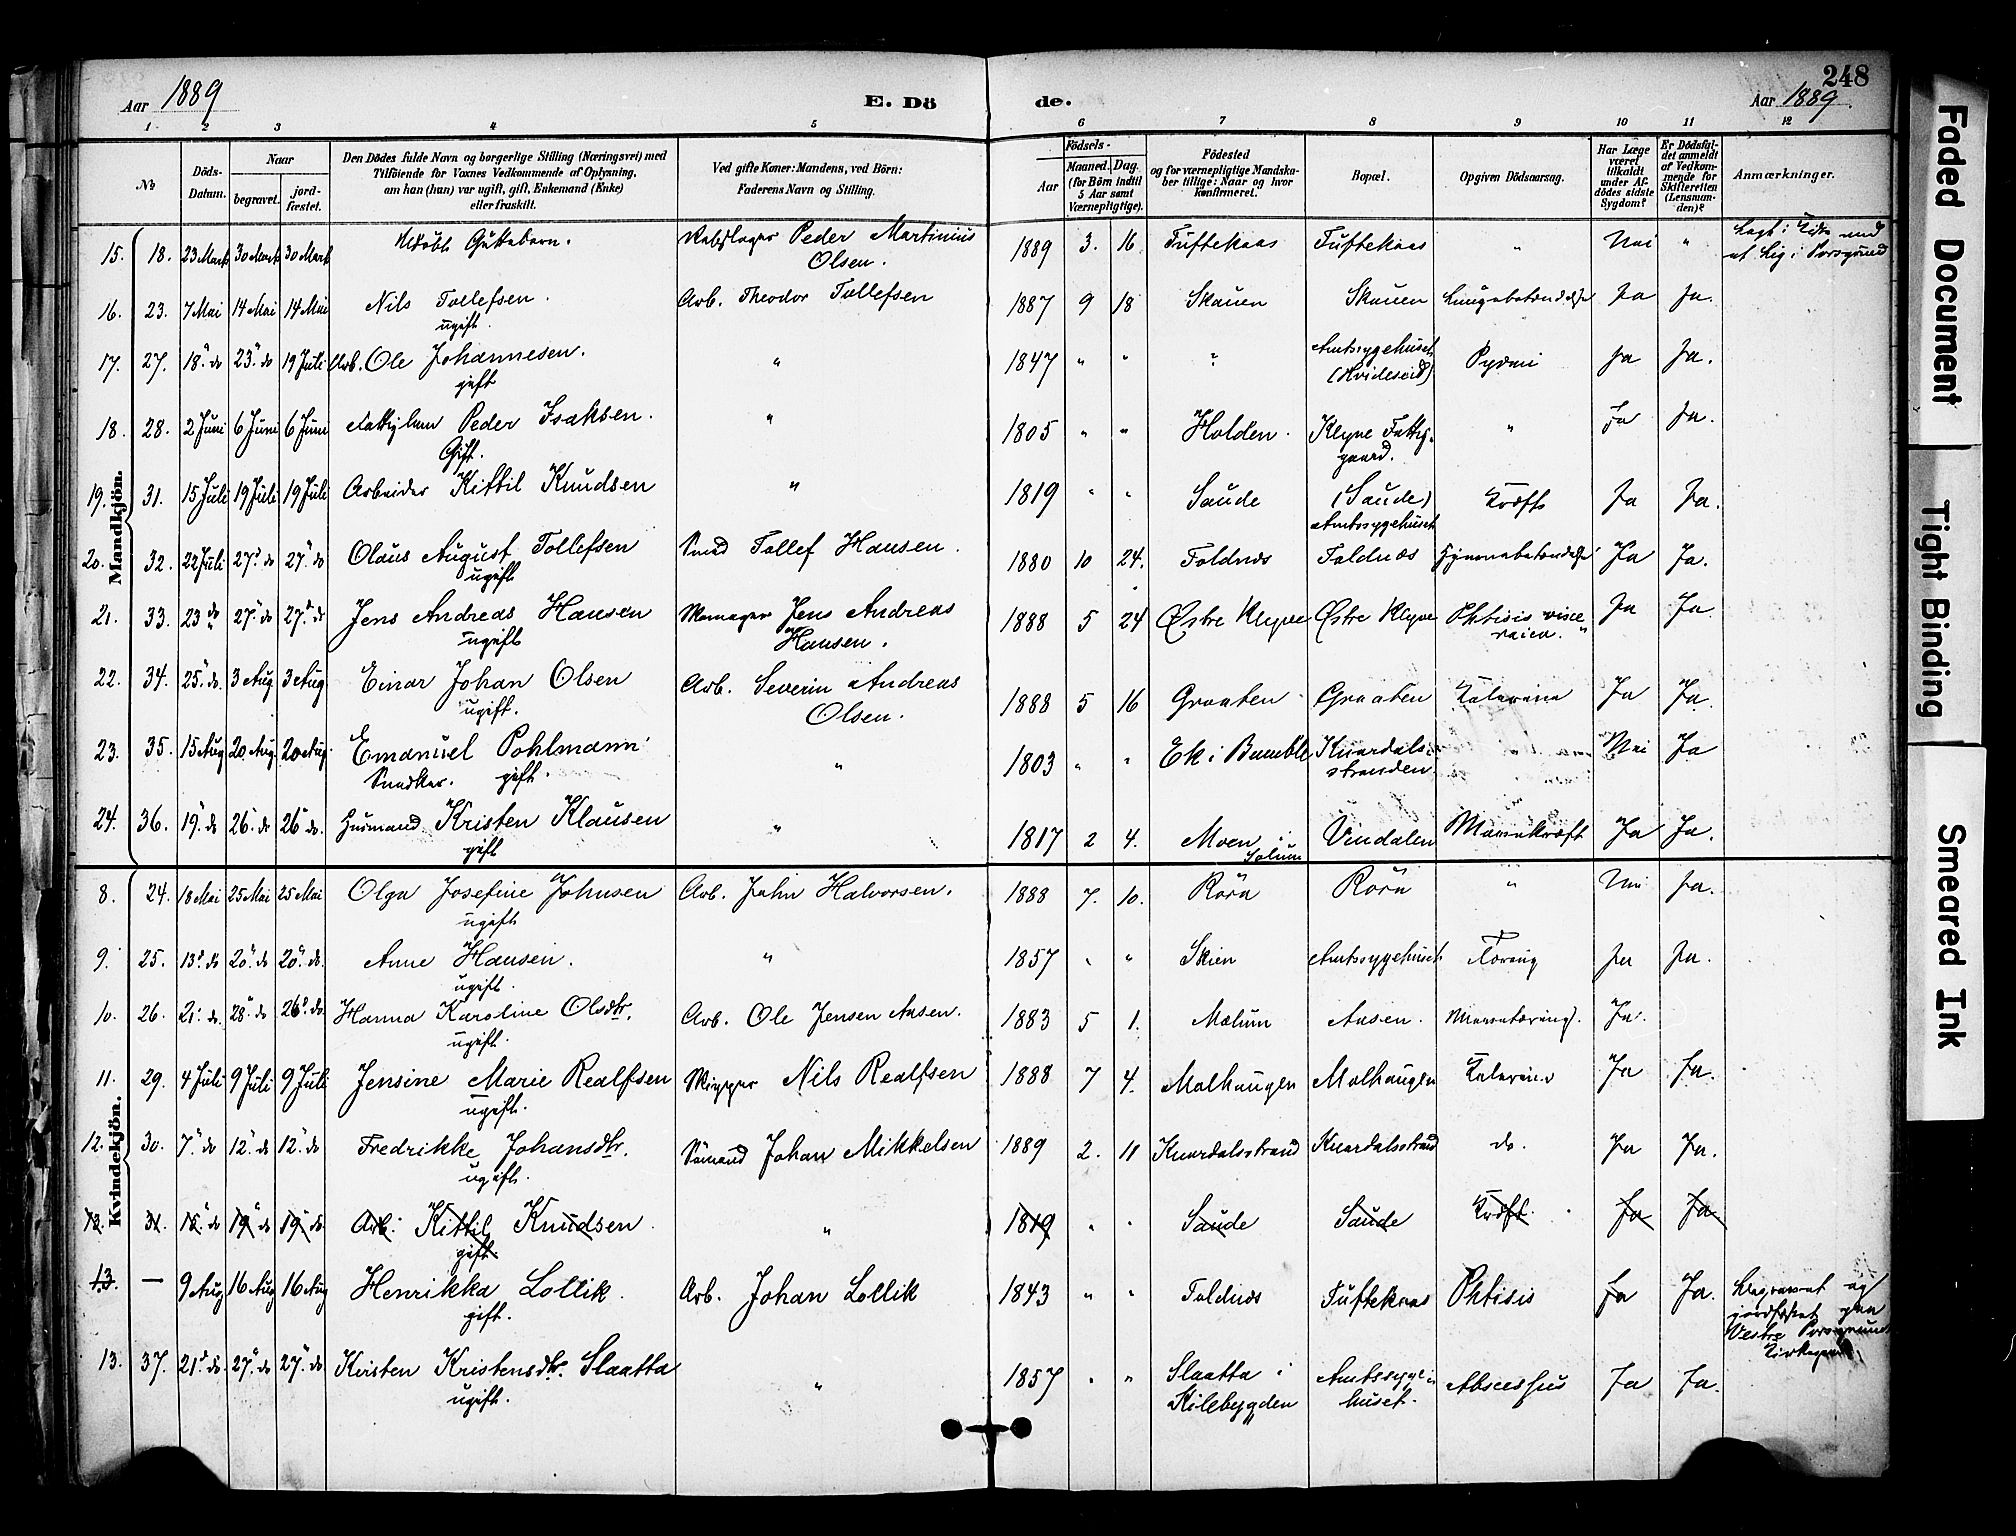 248
Aar 1889
E. Dö
de.
Aar 1889
1 2 3 4 5 6 7 8 9 10 11 12
No
Döds-Datum.
Naar
begravet.
jord-fæstet.
Den Dödes fulde Navn og borgerlige Stilling (Næringsvei) med
Tilföiende for Voxnes Vedkommende af Oplysning,
om han (hun) var ugift, gift, Enkemand (Enke)
eller fraskilt.
Ved gifte Koner: Mandens, ved Börn:
Faderens Navn og Stilling.
Födsels-
Aar
Maaned. Dag.
(for Börn indtil
5 Aar samt
Værnepligtige).
Födested
og for værnepligtige Mandska-
ber tillige: Naar og hvor
konfirmeret.
Bopæl.
Opgiven Dödsaarsag.
Har Læge
været
tilkaldt
under Af-
dödes sidste
Sygdom?
Er Dödsfal-
det anmeldt
af Vedkom-
mende for
Skifteretten
(Lensman-
den)?
Anmærkninger.
Mandkjön.
15. 18. 23 Marts 30 Marts 30 Marts Udöbt Guttebarn. Rebslager Peder Martinius Olsen. 1889 3. 16 Tuftekaas Tuftekaas " Nei " Lagt i Kiste med et Lig i Porsgrund
16. 23. 7 Mai 14 Mai 14 Mai Nils Tollefsen. ugift. Arb. Theodor Tollefsen 1887 9 18 Skauen Skauen Lungebetændelse Ja Ja.
17. 27. 18" do 23" do 19 Juli Arb. Ole Johannesen. gift " 1847 " " ? Amtssygehuset (Hvideseid) Pyæmi Ja Ja.
18. 28. 2 Juni 6 Juni 6 Juni Fattiglem Peder Isaksen. Gift. " 1805 " " Holden. Klyve Fattiggaard. " Ja Ja.
19. 31. 15 Juli 19 Juli 19 Juli Arbeider Kittil Knudsen " 1819 " " Saude (Saude) Amtssygehuset Kræft Ja Ja.
20. 32. 22 Juli 27" do 27" do Olaus August Tollefsen ugift Smed Tollef Hansen. 1880 10 24. Foldnæs Foldnæs Hjernebetændelse Ja Ja.
21. 33. 23 do 27" do 27" do Jens Andreas Hansen ugift Jens Andreas Hansen. 1888 5 24 Østre Klyve Østre Klyve Phtisis Ja Ja
22. 34. 25" do. 3 Aug 3 Aug. Einar Johan Olsen ugift. Arb. Severin Andreas Olsen. 1888 5 16 Graaten Graaten Kolerine Ja Ja.
23. 35. 15 Aug 20 Aug. 20 Aug. Emanuel Pohlmann Snedker. gift. " 1803 " " Ek i Bamble Knardalsstranden Nei Ja
24. 36. 19" do 26" do 26" do. Husmand Kristen Klausen gift " 1817 2 4. Moen i Solum Vindalen Mavekræft Ja Ja.
Kvindekjön.
8. 24. 18 Mai 25 Mai 25 Mai Olga Josefine Johnsen ugift Arb. John Halvorsen. 1888 7. 10. Röra Röra " Nei Ja.
9. 25. 13" do 20" do 20" do. Anne Hansen. ugift. " 1857 " " Skien Amtssygehuset Tæring Ja Ja.
10. 26. 21" do. 28" do 26" do. Hanna Karoline Olsdtr. ugift. Arb. Ole Jensen Aasen. 1883 5 1. Mælum Aasen. Mavetæring. Ja.
11. 29. 4 Juli 9 Juli 9 Juli Jensine Marie Realfsen ugift. Nils Realfsen 1888 7 4. Molhaugen Molhaugen Kolerine Ja Ja.
12. 30. 7" do 12" do 12" do Fredrikke Johansdtr. ugift. Sömand Johan Mikkelsen 1889 2. 11 Knardalsstrand Knardalsstrand do. Ja Ja.
13. 31. 15" do 19" do 19" do Arb: Kittil Knudsen. gift. " 1819 " " Saude Saude Kræft. Ja Ja
13. — 9 Aug 16 Aug 16 Aug Henrikka Lollik. gift. Arb. Johan Lollik 1843 " " Foldnæs Tuftekaas Phtisis Ja Ja. Begravet og jordfæstet paa Vestre Porsgrund Kirkegaard.
13. 37. 21" do. 27" do 27" do Kirsten Kristensdtr. Slaatta ugift. " 1857 " " Slaatta i Kilebygden Amtssygehuset. Abscessus Ja Ja.
Faded Document
Tight Binding
Smeared Ink